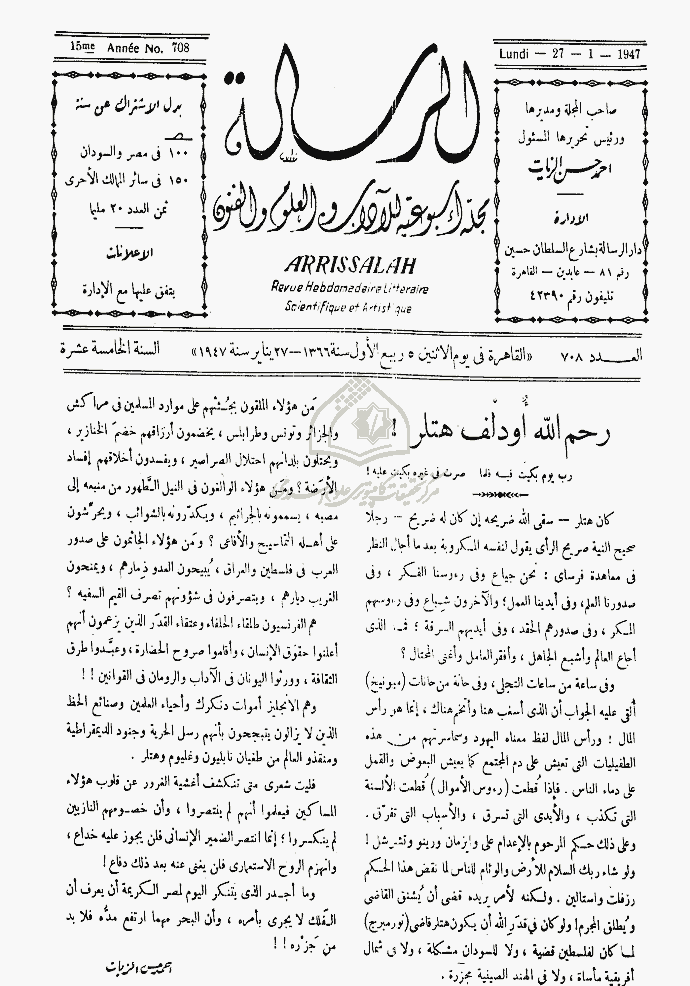 15me Année No. 708
بدل الاشتراك عن سنة
ص
١٠٠ فى مصر والسودان
١٥٠ فى سائر الممالك الأخرى
ثمن العدد ٢٠ مليا
الاعلانات
يتفق عليها مع الإدارة
الرسالة
مجلة أسبوعية للآداب والعلوم والفنون
ARRISSALAH
Revue Hebdomadaire Litteraire
Scientifique et Artistique
Lundi – 27 – 1 – 1947
صاحب المجلة ومديرها
ورئيس تحريرها المسئول
احمد حسن الزيات
الإدارة
دار الرسالة بشارع السلطان حسين
رقم ٨١ – عابدين – القاهرة
تليفون رقم ٤٢٣٩٠
العـــدد ٧٠٨ «القاهرة فى يوم الاثنين ٥ ربيع الأول سنة ١٣٦٦ – ٢٧ يناير سنة ١٩٤٧» السنة الخامسة عشرة
رحم الله أودلف هتلر !
رب يوم بكيت فيه فلما صرت فى غيره بكيت عليه !
كان هتلر – سقى الله ضريحه إن كان له ضريح – رجلا
صحيح النية صريح الرأى يقول لنفسه المكروبة بعد ما أجال النظر
فى معاهدة فرساى : نحن جياع وفى رءوسنا الفكر ، وفى
صدورنا العلم، وفى أيدينا العمل؛ والآخرون شباع وفى رءوسهم
المكر ، وفى صدورهم الحقد ، وفى أيديهم السرقة ؛ فمن الذى
أجاع العالم وأشبع الجاهل ، وأفقر العامل وأغنى المحتال ؟
وفى ساعة من ساعات التجلى ، وفى حانة من حانات (ميونيخ)
ألقى عليه الجواب أن الذى أسغب هنا وأتخم هناك ، إنما هو رأس
المال ؛ ورأس المال لفظ معناه اليهود وسماسرتهم من هذه
الطفيليات التى تعيش على دم المجتمع كما يعيش البعوض والقمل
على دماء الناس . فإذا قُطعت (رءوس الأموال) قُطعت الألسنة
التى تكذب ، والأيدى التى تسرق ، والأسباب التى تفرّق .
وعلى ذلك حكم المرحوم بالإعدام على وايزمان ورينو وتشرشل !
ولو شاء ربك السلام للأرض والوئام للناس لما نقض هذا الحكم
رزفلت واستالين . ولكنه لأمر يريده قضى أن يُشنق القاضى
ويُطلق المجرم! ولو كان فى قدر الله أن يكون هتلر قاضى (نورمبرج)
لما كان لفلسطين قضية ، ولا للسودان مشكلة ، ولا فى شمال
أفريقية مأساة ، ولا فى الهند الصينية مجزرة .
مَن هؤلاء الملقون بجُثثهم على موارد المسلمين فى مراكش
والجزائر وتونس وطرابلس ، يخضمون أرزاقهم خضم الخنازير ،
ويحتلون بلدانهم احتلال الصراصير ، ويفسدون أخلاقهم إفساد
الأرضة ؟ ومن هؤلاء الوالغون فى النيل الطّهور من منبعه إلى
مصبه ، يسممونه بالجراثيم ، ويكدّرونه بالشوائب ، ويحرّشون
على أهله التماسيح والأفاعى ؟ ومَن هؤلاء الجاثمون على صدور
العرب فى فلسطين والعراق ، يُبيحون العدو ذمارهم ، ويمنحون
الغريب ديارهم ، ويتصرفون فى شؤونهم تصرف القيم السفيه ؟
هم الفرنسيون طلقاء الحلفاء وعتقاء القدَر الذين يزعمون أنهم
أعلنوا حقوق الإنسان ، وأقاموا صروح الحضارة ، وعبَّدوا طرق
الثقافة ، وورثوا اليونان فى الآداب والرومان فى القوانين !!
وهم الانجليز أموات دنكرك وأحياء العلمين وصنائع الحظ
الذين لا يزالون يتبجحون بأنهم رسل الحرية وجنود الديمقراطية
ومنقذو العالم من طغيان نابليون وغليوم وهتلر .
فليت شعرى متى تنكشف أغشية الغرور عن قلوب هؤلاء
المساكين فيعلموا أنهم لم ينتصروا ، وأن خصومهم النازيين
لم ينكسروا ؛ إنما انتصر الضمير الإنسانى فلن يجوز عليه خداع ،
وانهزم الروح الاستعمارى فلن يغنى عنه بعد ذلك دفاع !
وما أجدر الذى يتنكر اليوم لمصر الكريمة أن يعرف أن
الفَلك لا يجرى بأمره ، وأن البحر مهما ارتفع مدُّه فلا بد
من جَزْره !!
احمد حسن الزيات